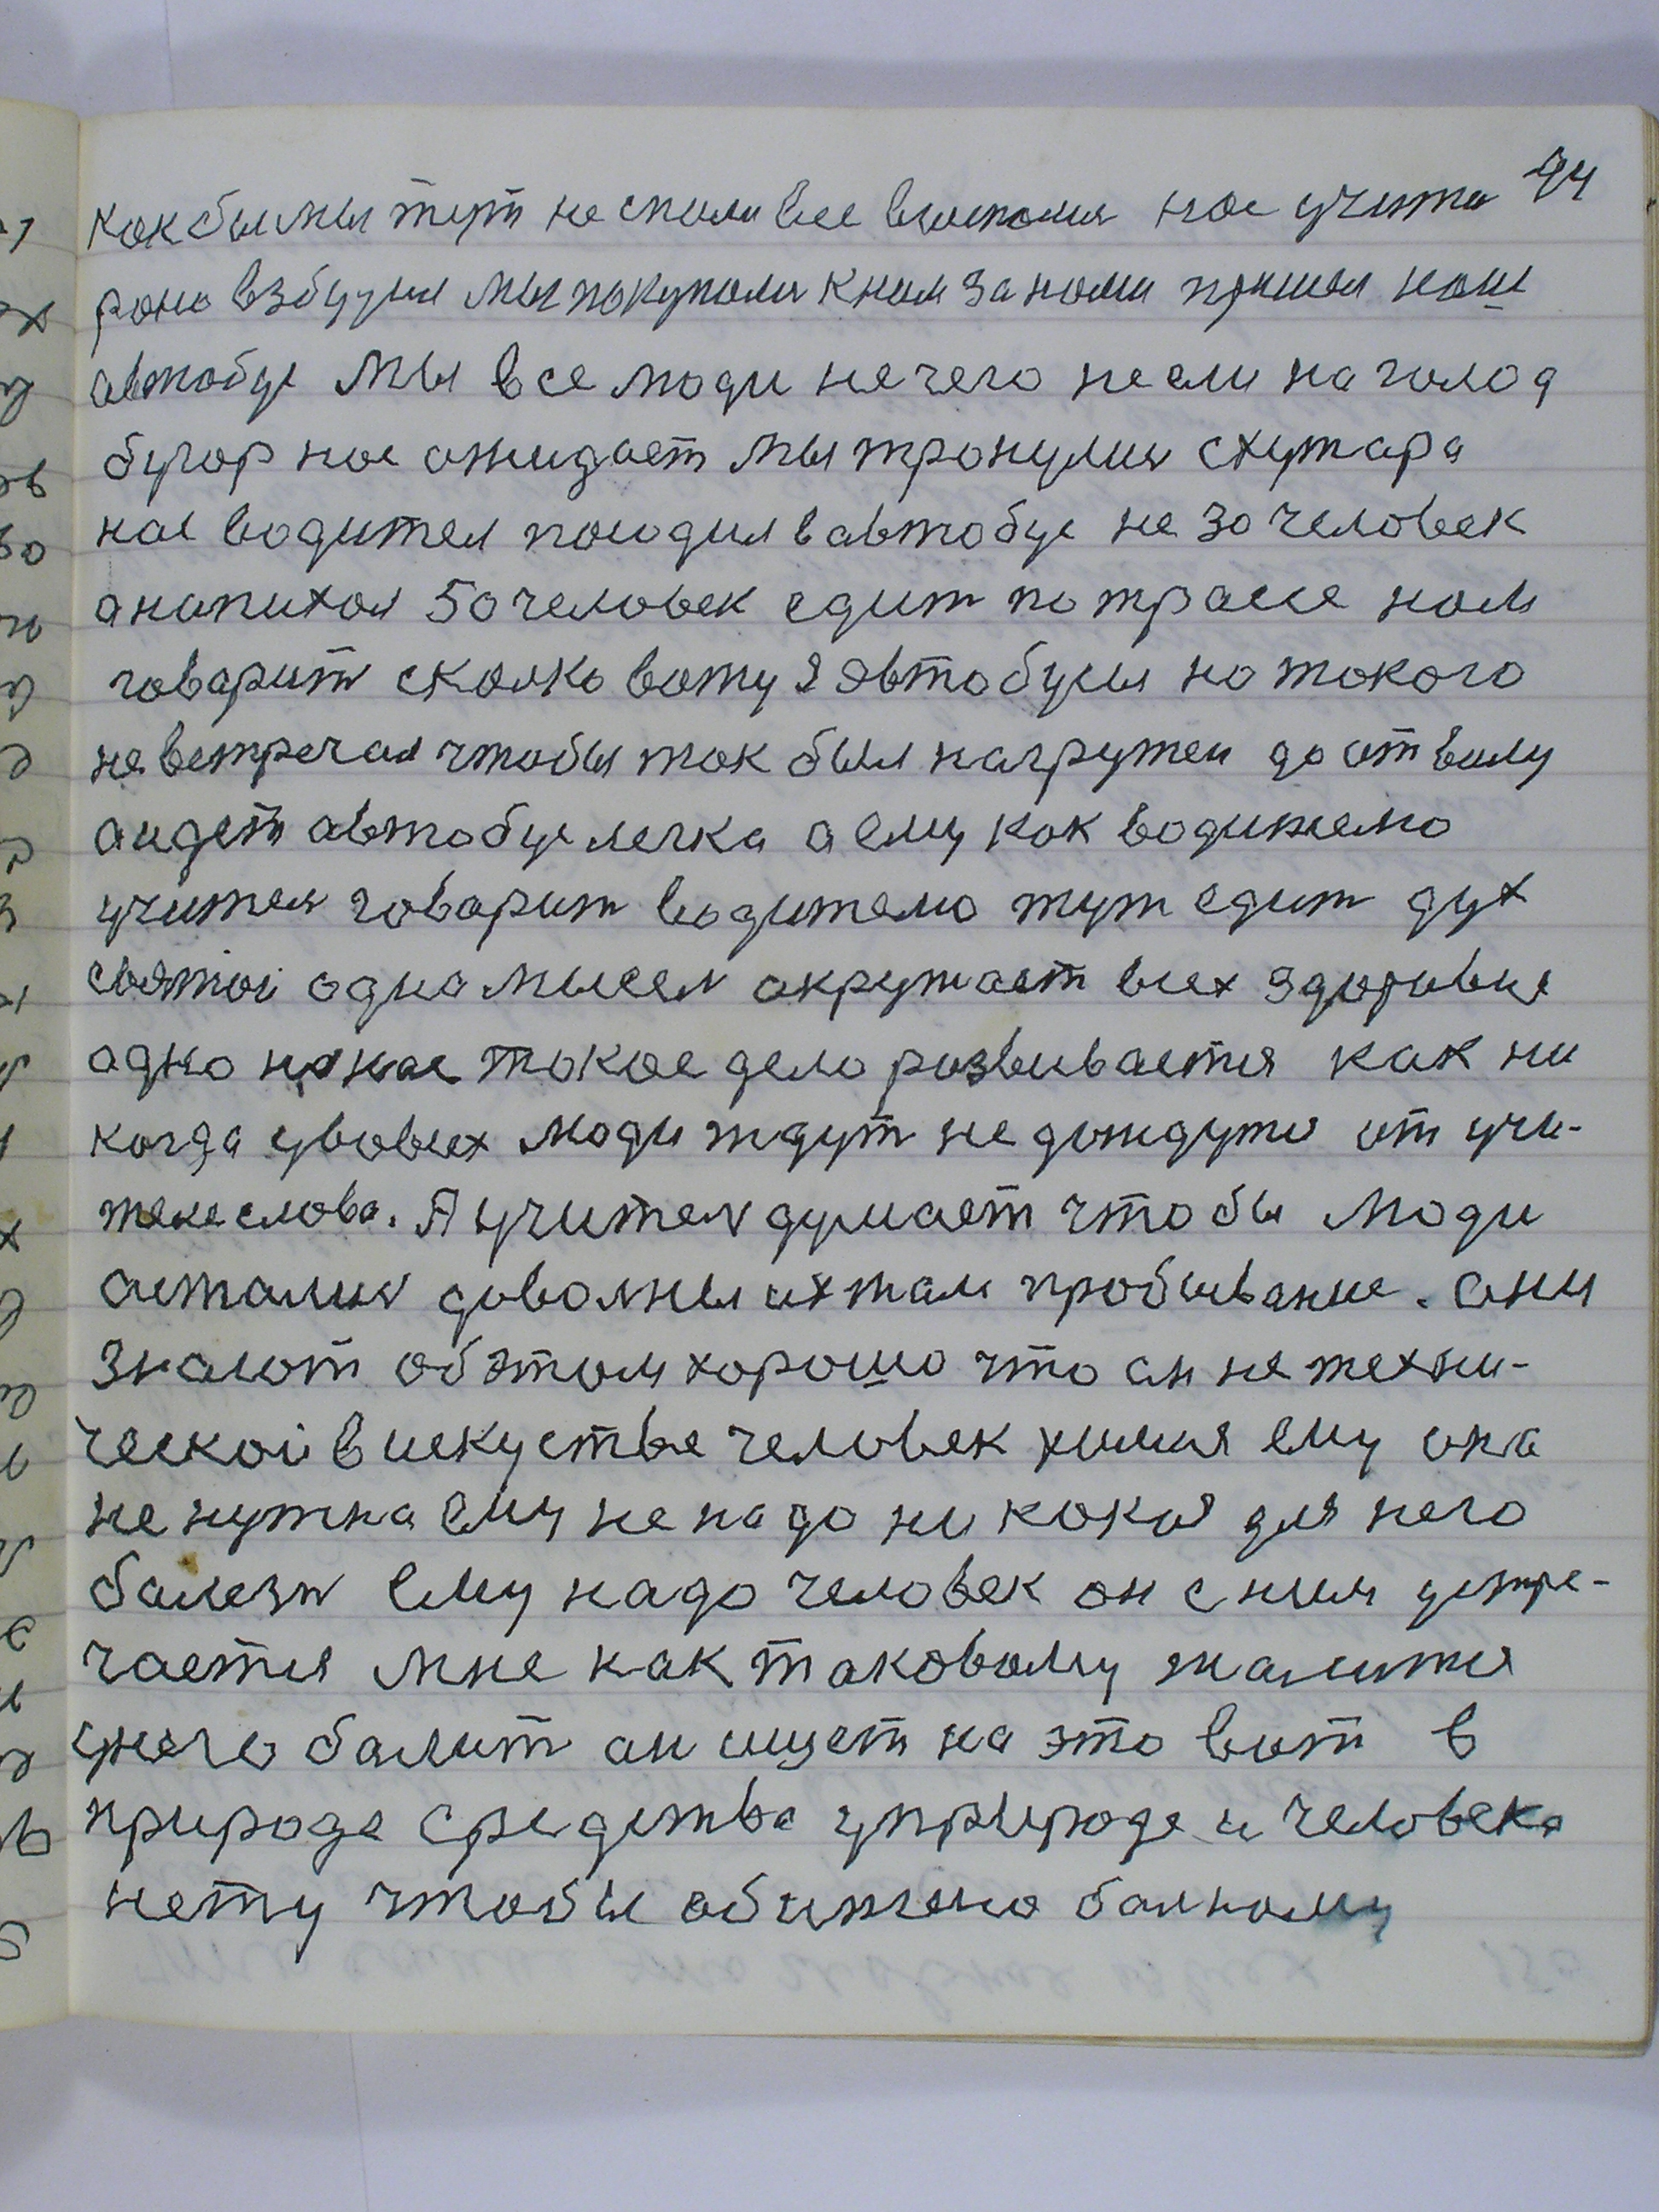 94
как бы мы тут не спали все висполия нас учите
рано взбудил мы покупались к ним за нами пришел наш
автобус мы все люди нечего не ели на голод
бугор нас ожидает мы тронулись схутара
нас водител посодил в автобус не 30 человек
а напихал 50 человек едит по трассе нам
говарить сколко вожу я автобусы но токого
не встречал чтобы так был нагружен до отвалу
а идеть автобус легка а ему как водителю
учител говарит водителю тут едит дух
святой одна мысел окружает всех здоровие
адно на нас токое дело развивается как ни
когда увовсех люди ждут не дождутся от учи-
теле слова. А учител думает чтобы люди
астались доволны их там пробывание. они
знают об этом хорошо что он не техни-
ческой в искустве человек химия ему она
не нужна ему не надо ни какия для него
балезн ему надо человек он с ним устре-
чается мне как таковому жалится
у него балит он ищет на это вот в
природе средства у природе и человека
нету чтобы обижено балному